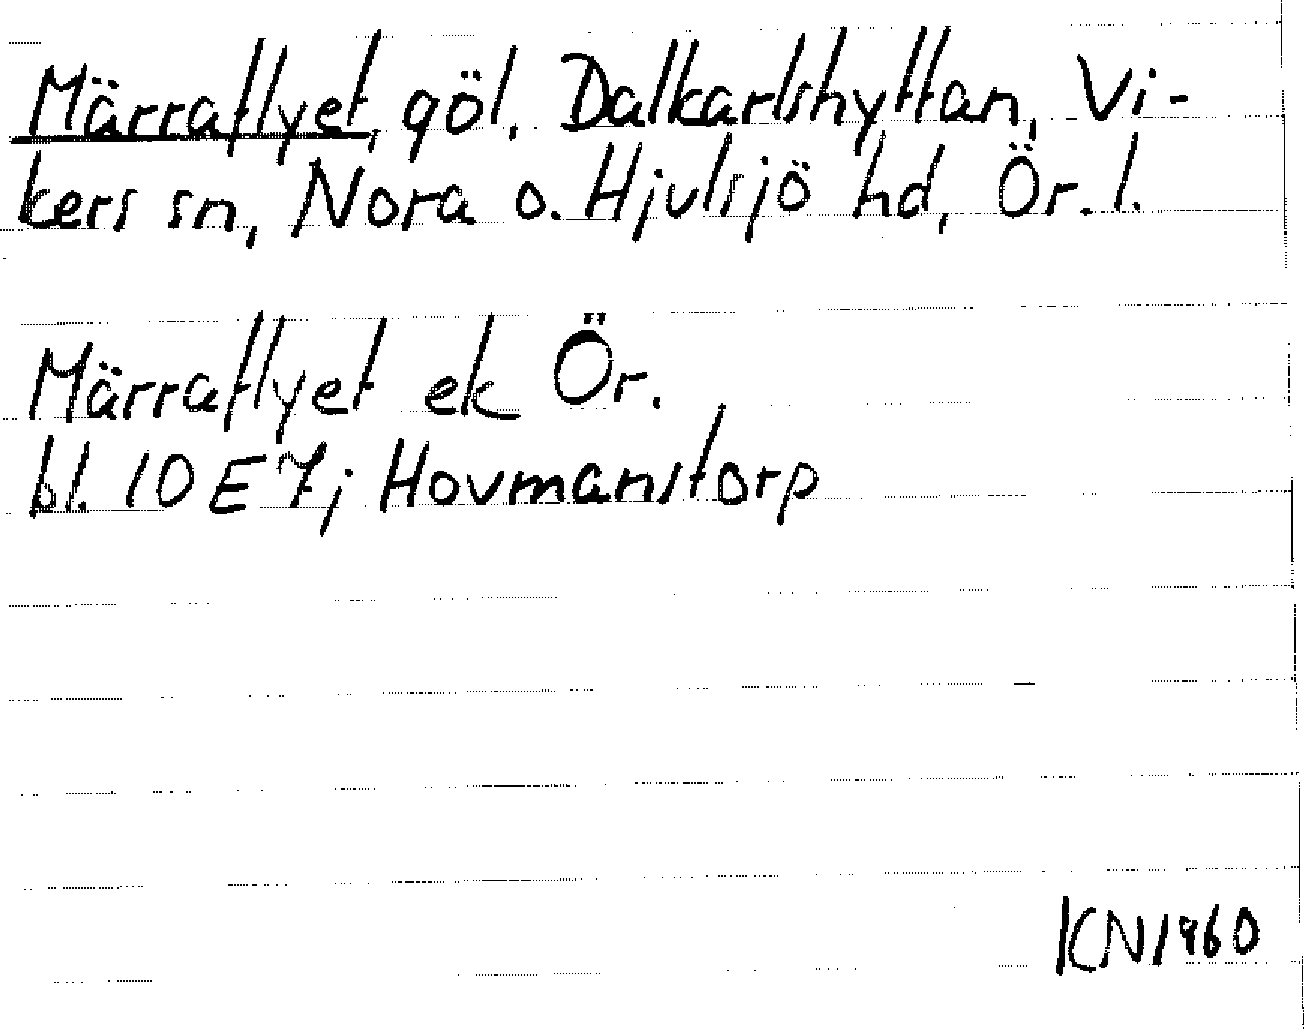 Märraflyet, göl, Dalkarlshyttan, Vi-
kers sn, Nora o. Hjulsjö hd, Ör. l.
Märraflyet ek Ör.
bl. 10 E 7j Hovmanstorp
KN 1960